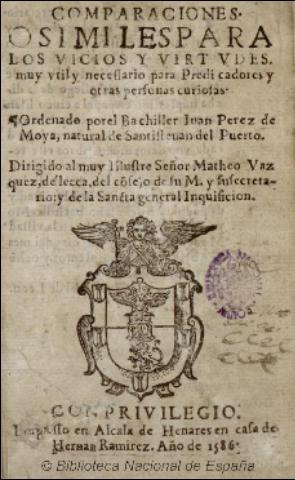 COMPARACIONES.
O SIMILES PARA
LOS VICIOS Y VIRTVDES.
muy vtil y necessario para Predicadores y
otras personas curiosas.
¶Ordenado por el Bachiller Iuan Perez de
Moya, natural de Santisteuan del Puerto.
Dirigido al muy Illustre Señor Matheo Vaz
quez, de lecca, del cōsejo de su M. y su secreta-
rio: y de la Sancta general Inquisicion.
CON PRIVILEGIO.
Impresso en Alcala de Henares en casa de
Hernan Ramirez. Año de 1586.
© Biblioteca Nacional de España